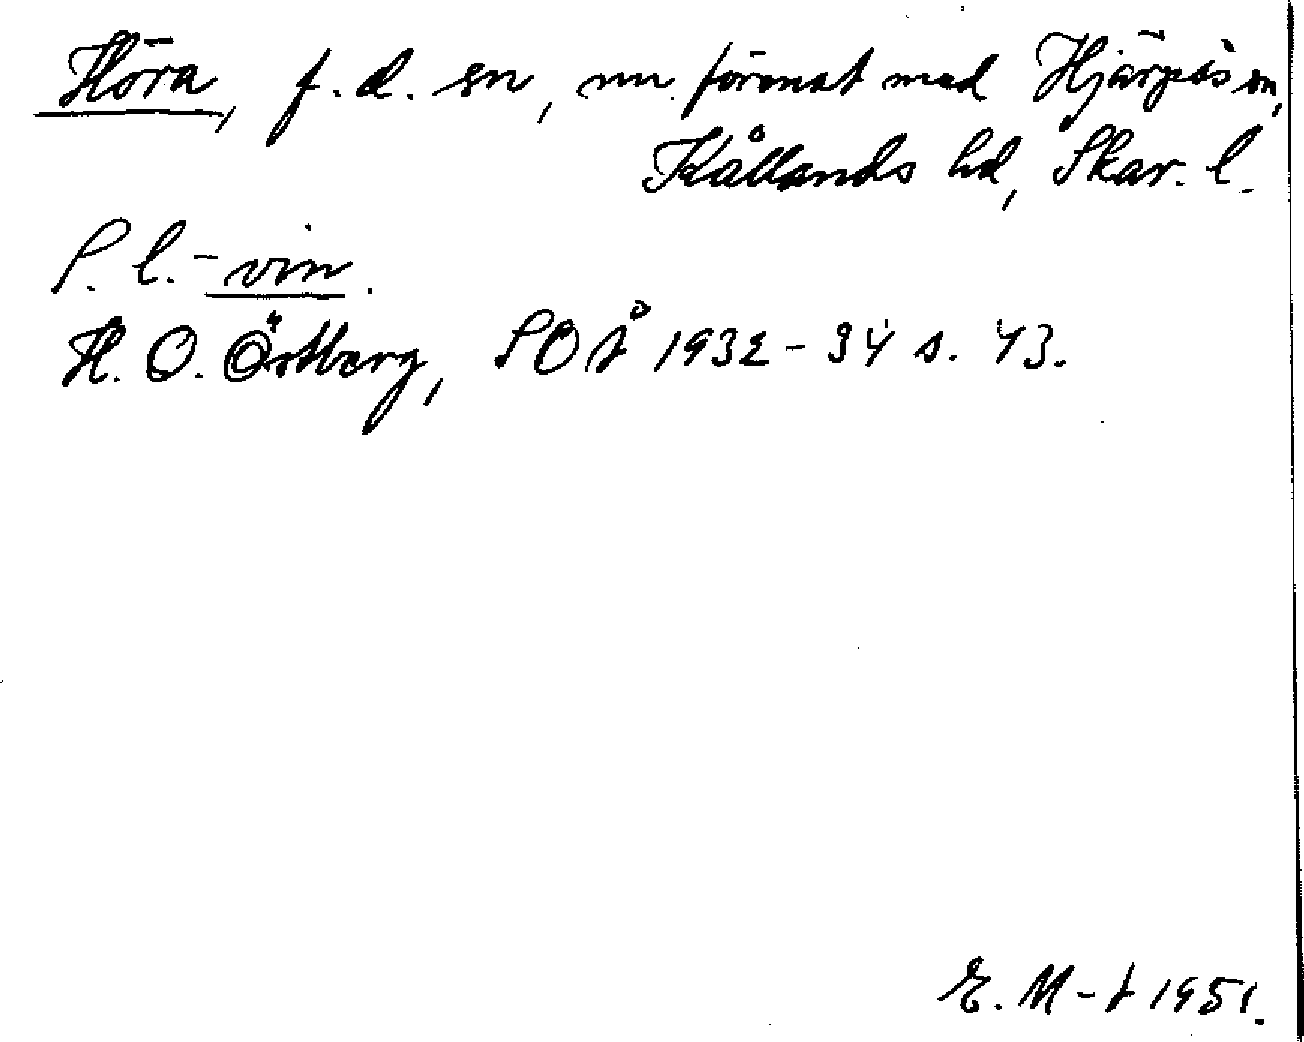 Höra, f.d. sn, nu förenat med Hjärpås sn,
Kållands hd, Skar. l.
S. l. -vin.
H. O. Östberg, SOÅ 1932-34 s. 43.
E. M-t 1951.